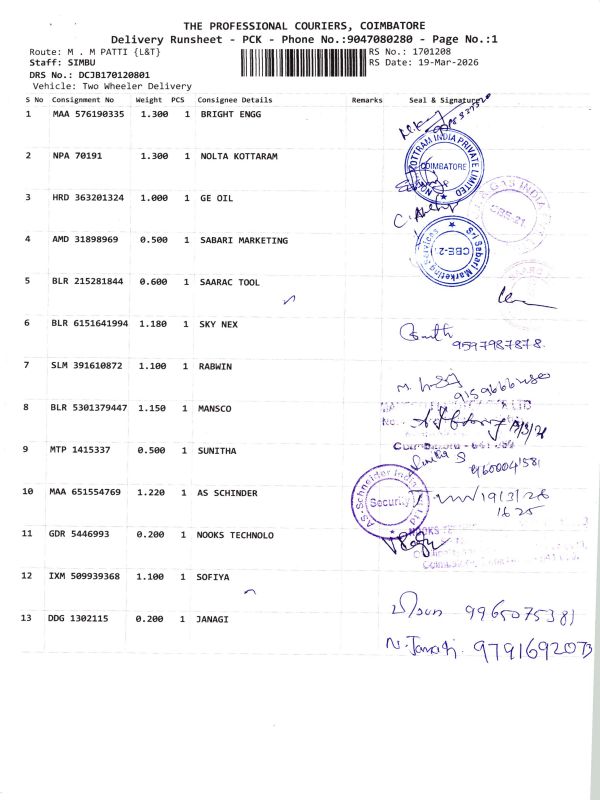 THE PROFESSIONAL COURIERS, COIMBATORE
Delivery Runsheet - PCK - Phone No.:9047080280 - Page No.:1
Route: M . M PATTI {L&T} RS No.: 1701208
Staff: SIMBU RS Date: 19-Mar-2026
DRS No.: DCJB170120801
Vehicle: Two Wheeler Delivery
S No Consignment No Weight PCS Consignee Details Remarks Seal & Signature
1 MAA 576190335 1.300 1 BRIGHT ENGG
2 NPA 70191 1.300 1 NOLTA KOTTARAM
KOTTRAM INDIA PRIVATE LIMITED
COIMBATORE
3 HRD 363201324 1.000 1 GE OIL
& GAS INDIA
CBE-21
4 AMD 31898969 0.500 1 SABARI MARKETING
Sri Sabari Marketing Services
CBE-21
5 BLR 215281844 0.600 1 SAARAC TOOL
6 BLR 6151641994 1.180 1 SKY NEX
9597987878
7 SLM 391610872 1.100 1 RABWIN
8 BLR 5301379447 1.150 1 MANSCO
9 MTP 1415337 0.500 1 SUNITHA
9600041581
10 MAA 651554769 1.220 1 AS SCHINDER
AS-Schneider India
Security
19/3/26
1625
11 GDR 5446993 0.200 1 NOOKS TECHNOLO
12 IXM 509939368 1.100 1 SOFIYA
9965075381
13 DDG 1302115 0.200 1 JANAGI
N. Janagi 9791692073